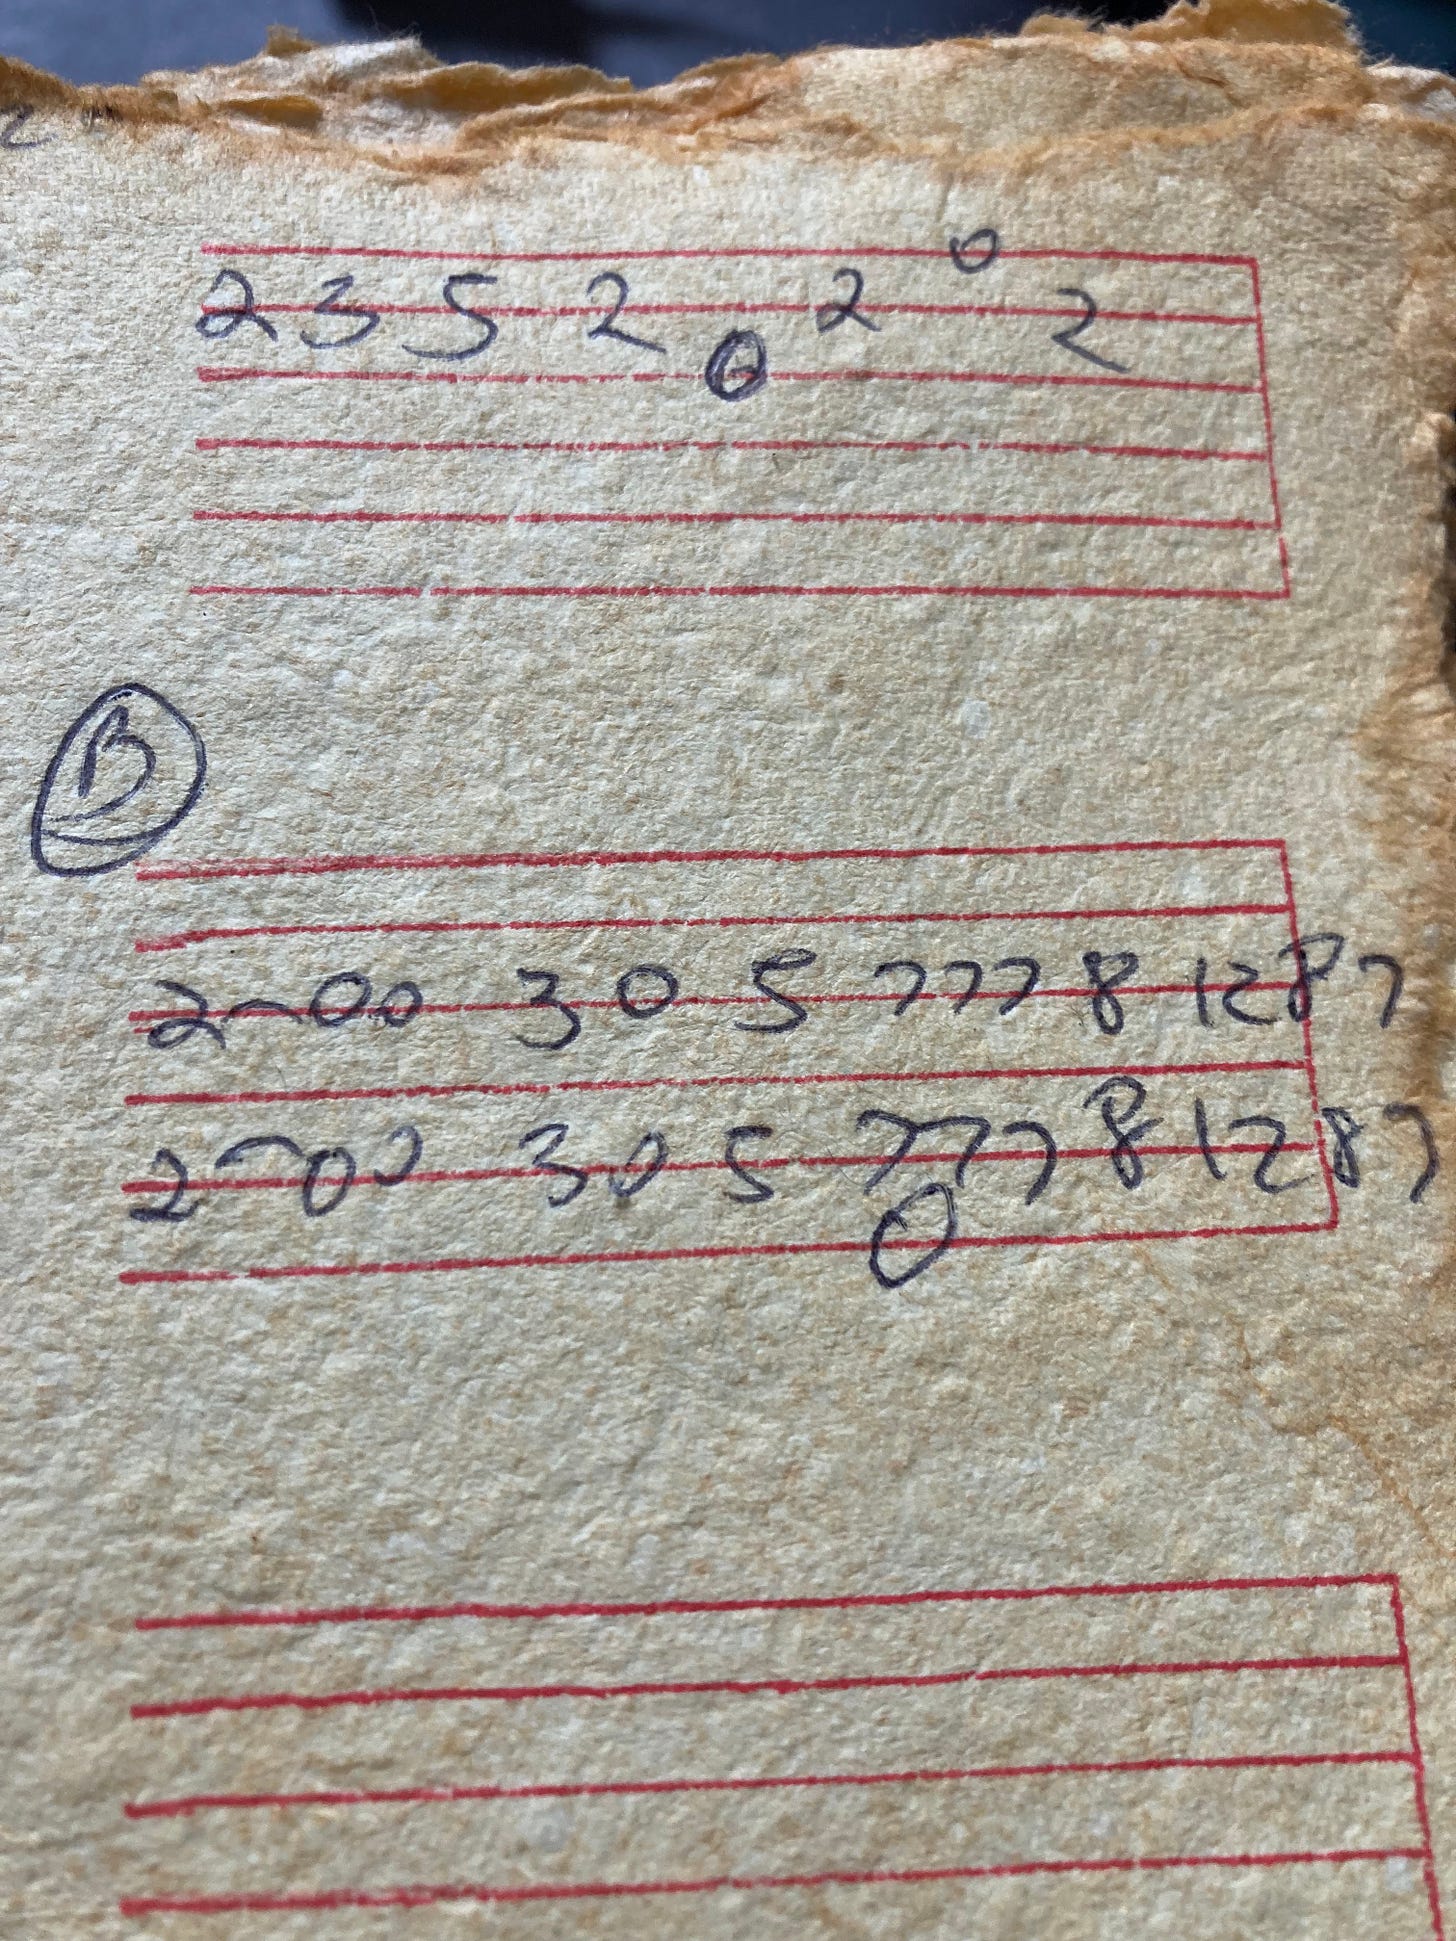 2 3 5 2 0 2 0 2
B
2~00 3 0 5 7 7 7 8 12 8 7
2~00 3 0 5 7 7 7 8 12 8 7
0